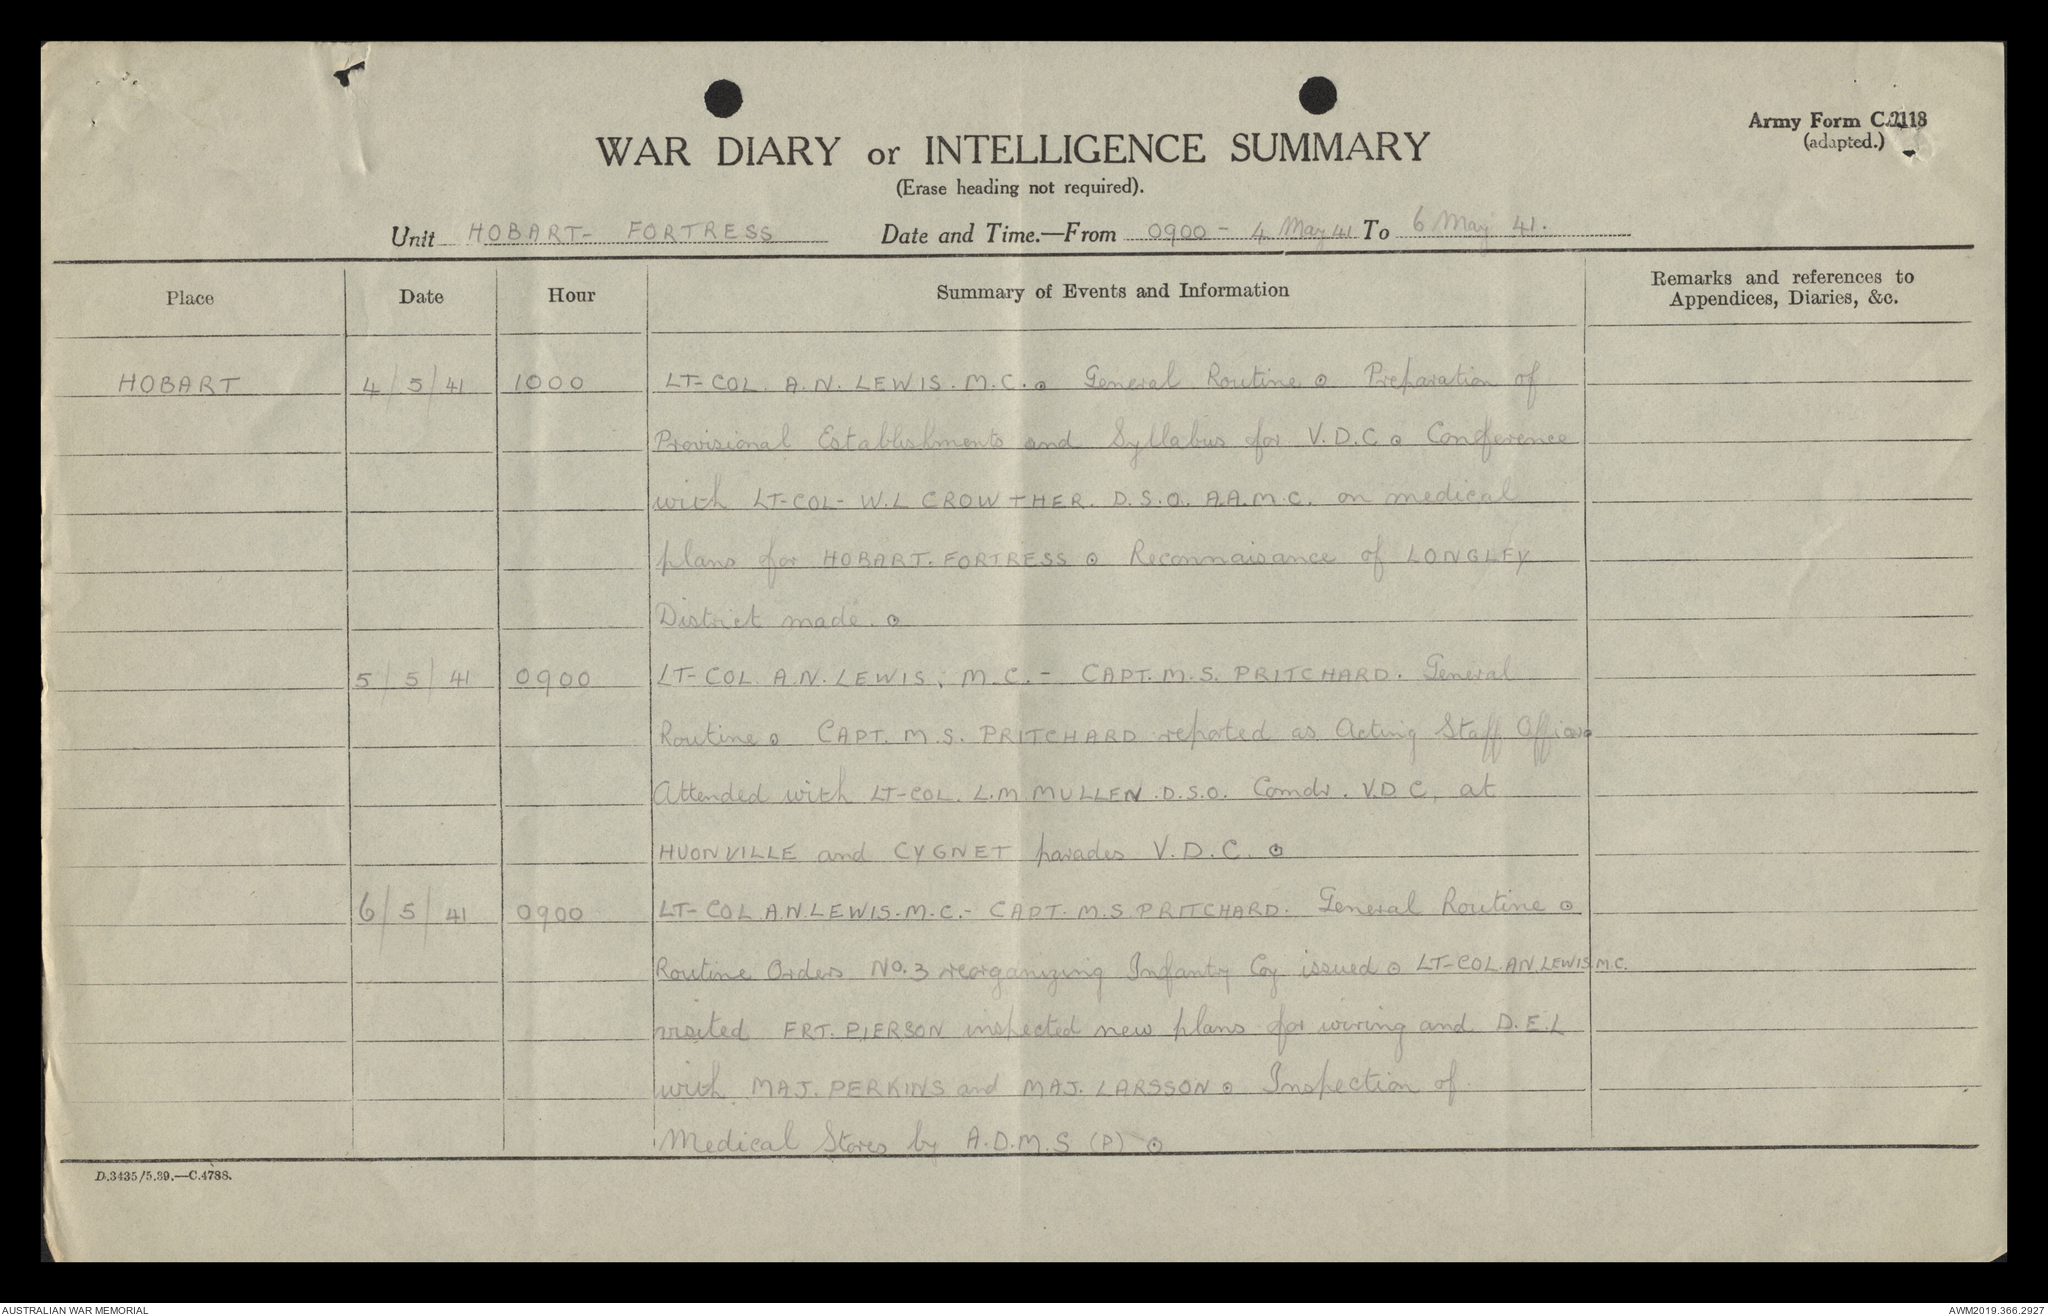 Army Form C.2118
(adapted.)
WAR DIARY or INTELLIGENCE SUMMARY
(Erase heading not required).
Unit HOBART- FORTRESS Date and Time.—From 0900 - 4 May 41 To 6 May 41.
Place Date Hour Summary of Events and Information Remarks and references to
Appendices, Diaries, &c.
HOBART 4/5/41 1000 LT-COL. A.N. LEWIS. M.C.. General Routine. Preparation of
Provisional Establishments and Syllabus for V.D.C. Conference
with LT-COL- W.L CROWTHER. D.S.O. A.A.M.C. on medical
plans for HOBART. FORTRESS. Reconnaisance of LONGLEY
District made..
5/5/41 0900 LT-COL. A.N. LEWIS, M.C. - CAPT. M.S. PRITCHARD. General
Routine. CAPT. M.S. PRITCHARD reported as Acting Staff Officer.
Attended with LT-COL. L.M. MULLEN D.S.O. Comdr. V.D.C. at
HUONVILLE and CYGNET parades V.D.C..
6/5/41 0900 LT-COL A.N. LEWIS. M.C. - CAPT. M.S. PRITCHARD. General Routine.
Routine Orders No. 3 reorganizing Infantry Coy issued. LT-COL. A.N. LEWIS M.C.
visited FRT. PIERSON inspected new plans for wiring and D.E.L
with MAJ. PERKINS and MAJ. LARSSON. Inspection of
Medical Stores by A.D.M.S (P).
D.3435/5.39.—C.4788.
AUSTRALIAN WAR MEMORIAL AWM2019.366.2927